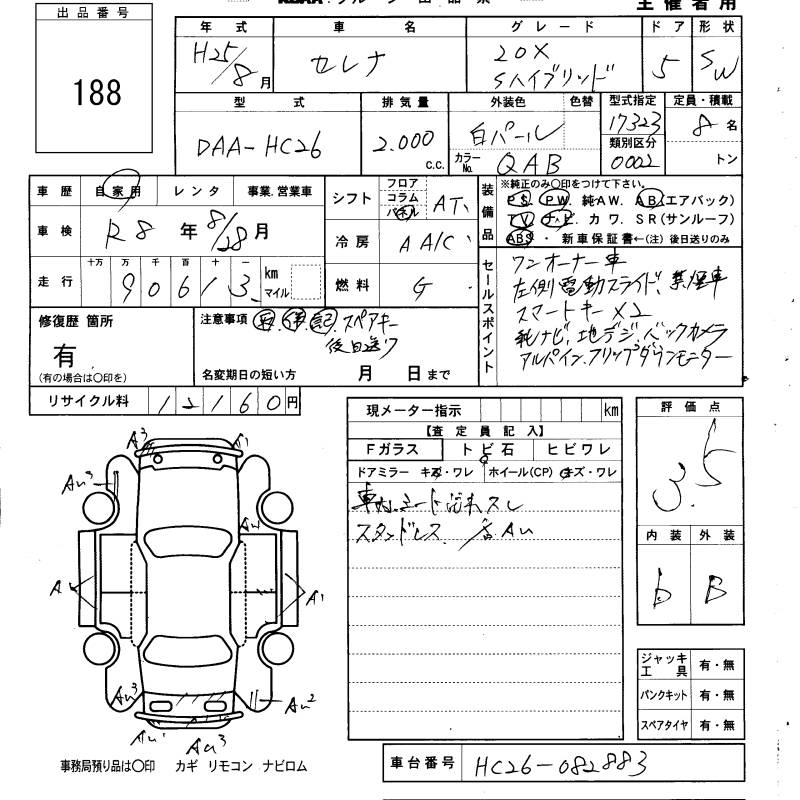 主催者用
出品番号
188
年式 車名 グレード ドア 形状
H25/8月 セレナ 20X Sハイブリッド 5 SW
型式 排気量 外装色 色替 型式指定 定員・積載
DAA-HC26 2.000 c.c. 白パール 17323 8名
カラーNo. QAB 類別区分 0002 トン
車歴 自家用 レンタ 事業.営業車
車検 R8年8/28月
走行 十万 万 千 百 十 一
90613 km マイル
シフト フロア コラム パネル AT
冷房 A A/C
燃料 G
装備品 ※純正のみ〇印をつけて下さい。
PS. PW. 純AW. AB(エアバック)
TV. ナビ. カワ. SR(サンルーフ)
ABS ・ 新車保証書←(注) 後日送りのみ
セールスポイント
ワンオーナー車
左側電動スライド、禁煙車
スマートキーX2
純ナビ、地デジ、バックカメラ
アルパイン.フリップダウンモニター
修復歴 箇所
有
(有の場合は〇印を)
注意事項 スペアキー
後日送り
名変期日の短い方 月 日まで
リサイクル料 12160円
現メーター指示 km
【査定員記入】
Fガラス トビ石 ヒビワレ
ドアミラー キズ・ワレ ホイール(CP) キズ・ワレ
車内.シート汚れスレ
スタッドレス AU
評価点
3.5
内装 外装
b B
A3 A1
AU3
AW
A A1
AU3 AU2
AU1 AU3
ジャッキ工具 有・無
パンクキット 有・無
スペアタイヤ 有・無
事務局預り品は〇印 カギ リモコン ナビロム
車台番号 HC26-082883